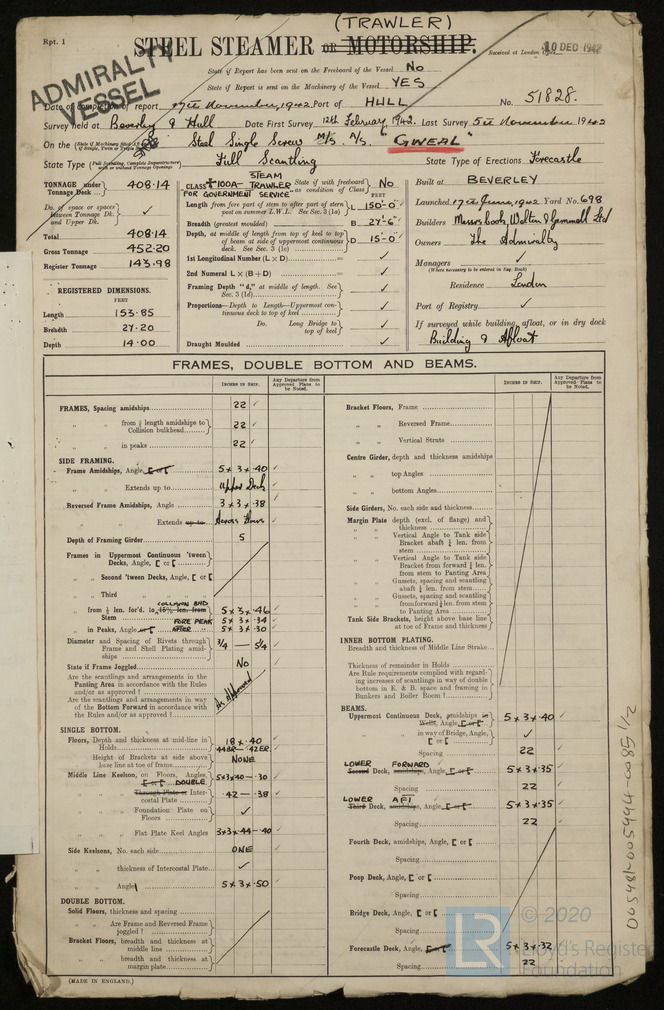 (TRAWLER)
Rpt. 1
STEEL STEAMER OR MOTORSHIP.
Received at London Office
10 DEC 1942
ADMIRALTY VESSEL
State if Report has been sent on the Freeboard of the Vessel No
State if Report is sent on the Machinery of the Vessel YES
Date of completion of report 27th November, 1942. Port of HULL No. 51828.
Survey held at Beverley & Hull Date First Survey 12th February, 1942. Last Survey 5th November 1942
On the Steel Single Screw "GWEAL"
State Type Full Scantling State Type of Erections Forecastle
TONNAGE under Tonnage Deck 408.14
Do. of space or spaces between Tonnage Dk. and Upper Dk. ✓
Total 408.14
Gross Tonnage 452.20
Register Tonnage 143.98
REGISTERED DIMENSIONS.
FEET
Length 153.85
Breadth 27.20
Depth 14.00
CLASS +100A- STEAM TRAWLER FOR GOVERNMENT SERVICE" State if with freeboard as condition of Class No
FEET
Length from fore part of stem to after part of stern post on summer L.W.L. See Sec. 3 (1a) L 150'-0"
Breadth (greatest moulded) B 27'-6"
Depth, at middle of length from top of keel to top of beam at side of uppermost continuous deck. See Sec. 3 (1c) D 15'-0"
1st Longitudinal Number (L × D) = ✓
2nd Numeral L × (B + D) = ✓
Framing Depth "d," at middle of length. See Sec. 3 (1d) ✓
Proportions—Depth to Length—Uppermost continuous deck to top of keel ✓
Do. Long Bridge to top of keel ✓
Draught Moulded ✓
Built at BEVERLEY
Launched 17th June, 1942 Yard No. 698
Builders Messrs Cook, Welton & Gemmell Ltd
Owners The Admiralty
Managers ✓
(Where necessary to be entered in Reg. Book)
Residence London
Port of Registry ✓
If surveyed while building, afloat, or in dry dock
Building & Afloat
FRAMES, DOUBLE BOTTOM AND BEAMS.
INCHES IN SHIP.
Any Departure from Approved Plans to be Noted.
FRAMES, Spacing amidships 22 ✓
" " from ¾ length amidships to Collision bulkhead 22 ✓
" " in peaks 22 ✓
SIDE FRAMING.
Frame Amidships, Angle, [ or [ 5 × 3 × .40 ✓
" " Extends up to Upper Deck ✓
Reversed Frame Amidships, Angle 3 × 3 × .38 ✓
" " " Extends up to Across Floors ✓
Depth of Framing Girder 5 ✓
Frames in Uppermost Continuous 'tween Decks, Angle, [ or [
" Second 'tween Decks, Angle, [ or [
" Third " " "
" from ¼ len. for'd. to 15% len. from Stem COLLISION BHD 5 × 3 × .46 ✓
FORE PEAK 5 × 3 × .34 ✓
" in Peaks, Angle or [ AFTER 5 × 3 × .30 ✓
Diameter and Spacing of Rivets through Frame and Shell Plating amidships ¾ — 5¼
State if Frame Joggled No ✓
Are the scantlings and arrangements in the Panting Area in accordance with the Rules and/or as approved ?
Are the scantlings and arrangements in way of the Bottom Forward in accordance with the Rules and/or as approved ?
As Approved
SINGLE BOTTOM.
Floors, Depth and thickness at mid-line in Holds 18 × .40 ✓
Height of Brackets at side above base line at toe of frame NONE
Middle Line Keelson, on Floors, Angles, [ or [ DOUBLE 5×3×40 — .30 ✓
" " " Through Plate or Intercostal Plate .42 — .38 ✓
" " " Foundation Plate on Floors ✓
" " " Flat Plate Keel Angles 3×3×.44 - .40 ✓
Side Keelsons, No. each side ONE ✓
" " thickness of Intercostal Plate ✓
" " Angle 5 × 3 × .50 ✓
DOUBLE BOTTOM.
Solid Floors, thickness and spacing
" " Are Frame and Reversed Frame joggled ?
Bracket Floors, breadth and thickness at middle line
" " breadth and thickness at margin plate
(MADE IN ENGLAND.)
INCHES IN SHIP.
Any Departure from Approved Plans to be Noted.
Bracket Floors, Frame
" " Reversed Frame
" " Vertical Struts
Centre Girder, depth and thickness amidships
" " top Angles
" " bottom Angles
Side Girders, No. each side and thickness
Margin Plate depth (excl. of flange) and thickness
" " Vertical Angle to Tank side Bracket abaft ¼ len. from stem
" " Vertical Angle to Tank side Bracket from forward ¼ len. from stem to Panting Area
" " Gussets, spacing and scantling abaft ¼ len. from stem
" " Gussets, spacing and scantling from forward ¼ len. from stem to Panting Area
Tank Side Brackets, height above base line at toe of Frame and thickness
INNER BOTTOM PLATING.
Breadth and thickness of Middle Line Strake
Thickness of remainder in Holds
Are Rule requirements complied with regarding increases of scantlings in way of double bottom in E. & B. space and framing in Bunkers and Boiler Room ?
BEAMS.
Uppermost Continuous Deck, amidships in Wells, Angle, [ or [ 5 × 3 × .40 ✓
" " " in way of Bridge, Angle, [ or [ ✓
Spacing 22 ✓
LOWER FORWARD
Second Deck, amidships, Angle, [ or [ 5 × 3 × .35 ✓
Spacing 22 ✓
LOWER AFT
Third Deck, amidships, Angle, [ or [ 5 × 3 × .35 ✓
Spacing 22 ✓
Fourth Deck, amidships, Angle, [ or [
Spacing
Poop Deck, Angle, [ or [
Spacing
Bridge Deck, Angle, [ or [
Spacing
Forecastle Deck, Angle, [ or [ 5 × 3 × .32 ✓
Spacing 22 ✓
005481-005494-0085 1/2
LR © 2020
Lloyd's Register
Foundation